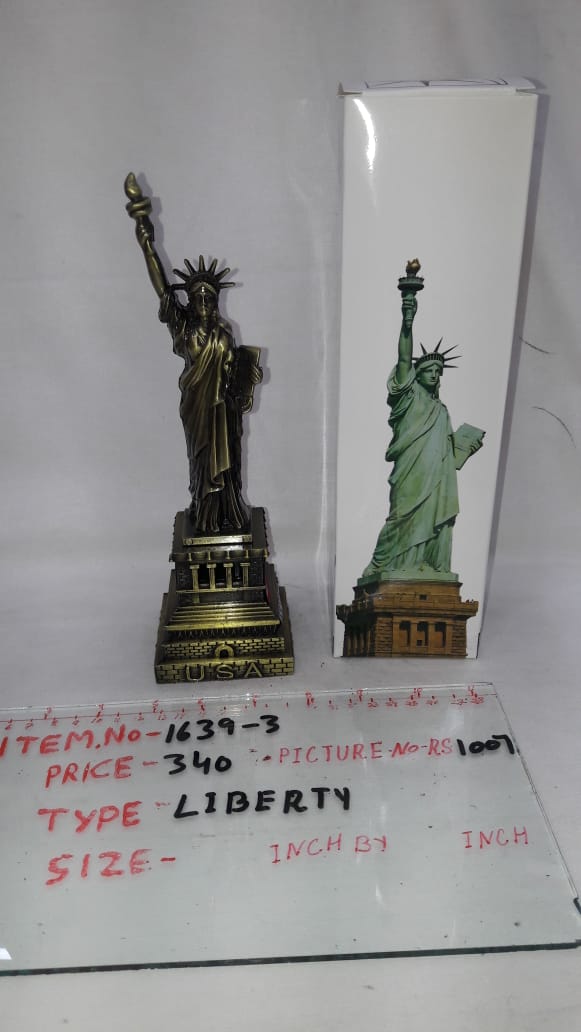 USA
ITEM.No-1639-3
PRICE-340 PICTURE-No-RS1007
TYPE-LIBERTY
SIZE- INCH BY INCH